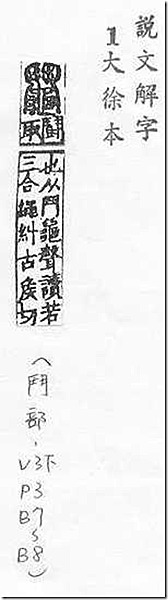 說文解字
1大徐本
鬮鬭
取
也从鬥龜聲讀若
三合繩糾古矦切
(鬥部、V3下
P3
B7
~
B8)